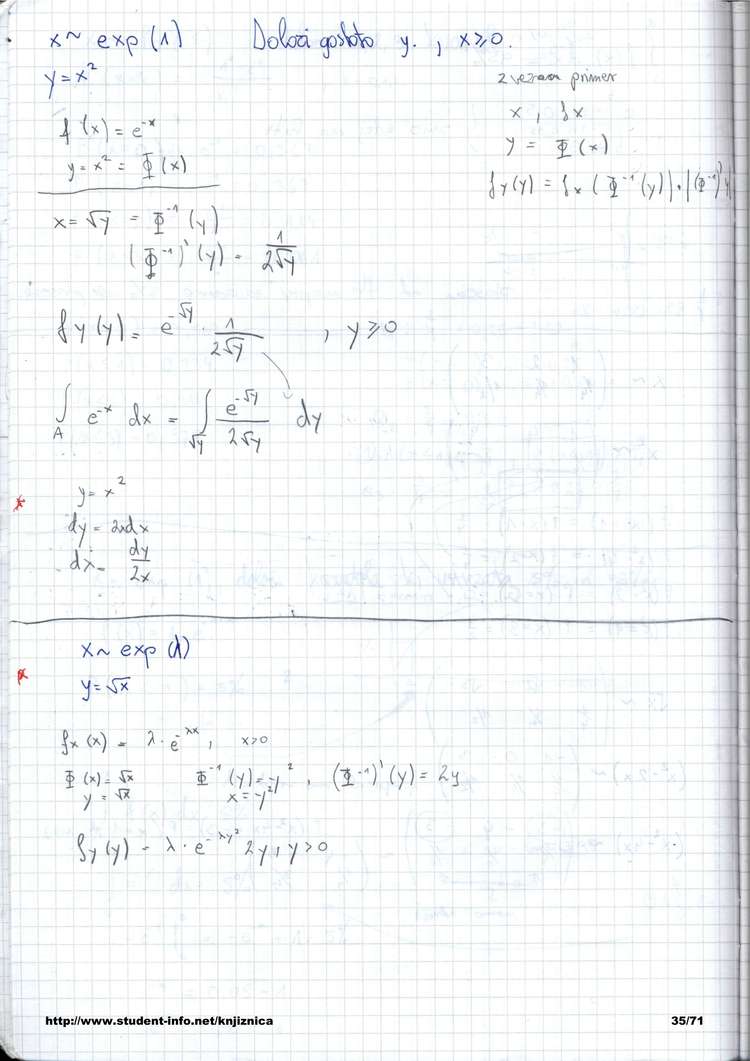 x ~ exp (1) Določi gostoto y. , x ≥ 0.
y = x²
f (x) = e^{-x}
y = x² = Φ (x)
zvezen primer
x , fx
y = Φ (x)
fy(y) = fx ( Φ^{-1} (y)) · |(Φ^{-1})' y|
x = √y = Φ^{-1} (y)
(Φ^{-1})' (y) = 1/(2√y)
fy (y) = e^{-√y} · 1/(2√y) , y ≥ 0
∫_A e^{-x} dx = ∫_{√y} e^{-√y}/(2√y) dy
y = x²
dy = 2xdx
dx = dy/2x
x ~ exp (λ)
y = √x
fx (x) = λ · e^{-λx} , x > 0
Φ (x) = √x Φ^{-1} (y) = y² , (Φ^{-1})' (y) = 2y
y = √x x = y²
fy (y) = λ · e^{-λy²} 2y , y > 0
http://www.student-info.net/knjiznica 35/71